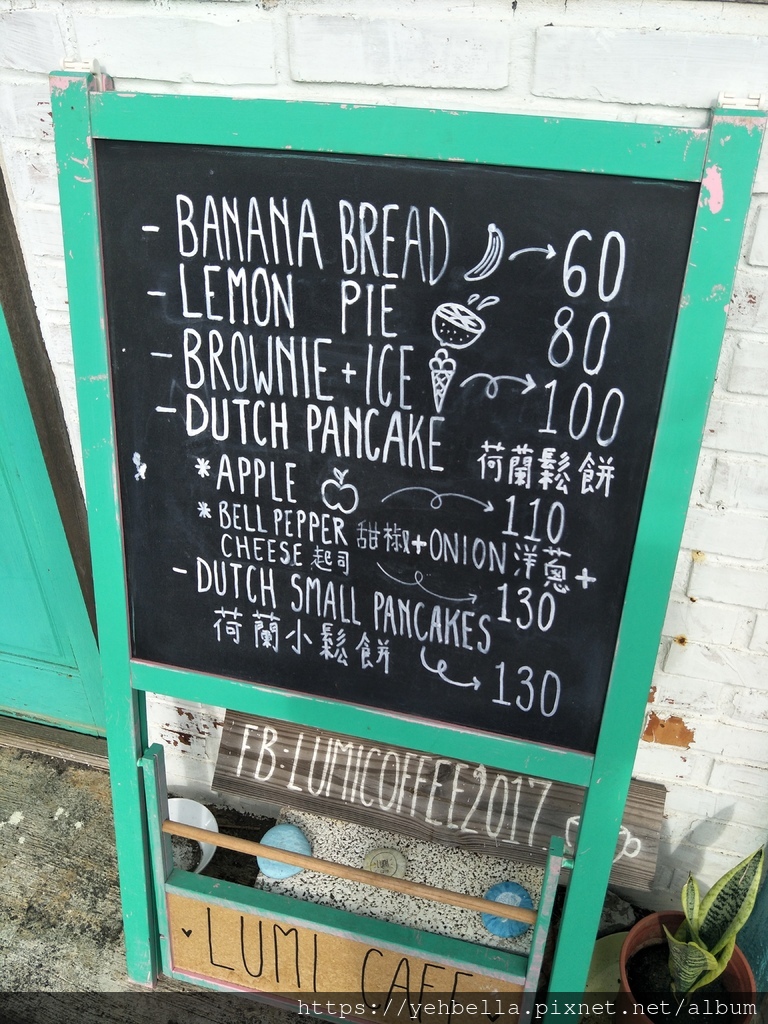 - BANANA BREAD 60
- LEMON PIE 80
- BROWNIE + ICE 100
- DUTCH PANCAKE 荷蘭鬆餅
* APPLE 110
* BELL PEPPER 甜椒+ONION 洋蔥+
CHEESE 起司 130
- DUTCH SMALL PANCAKES
荷蘭小鬆餅 130
FB:LUMICOFFEE2017
LUMI CAFE
https://yehbella.pixnet.net/album